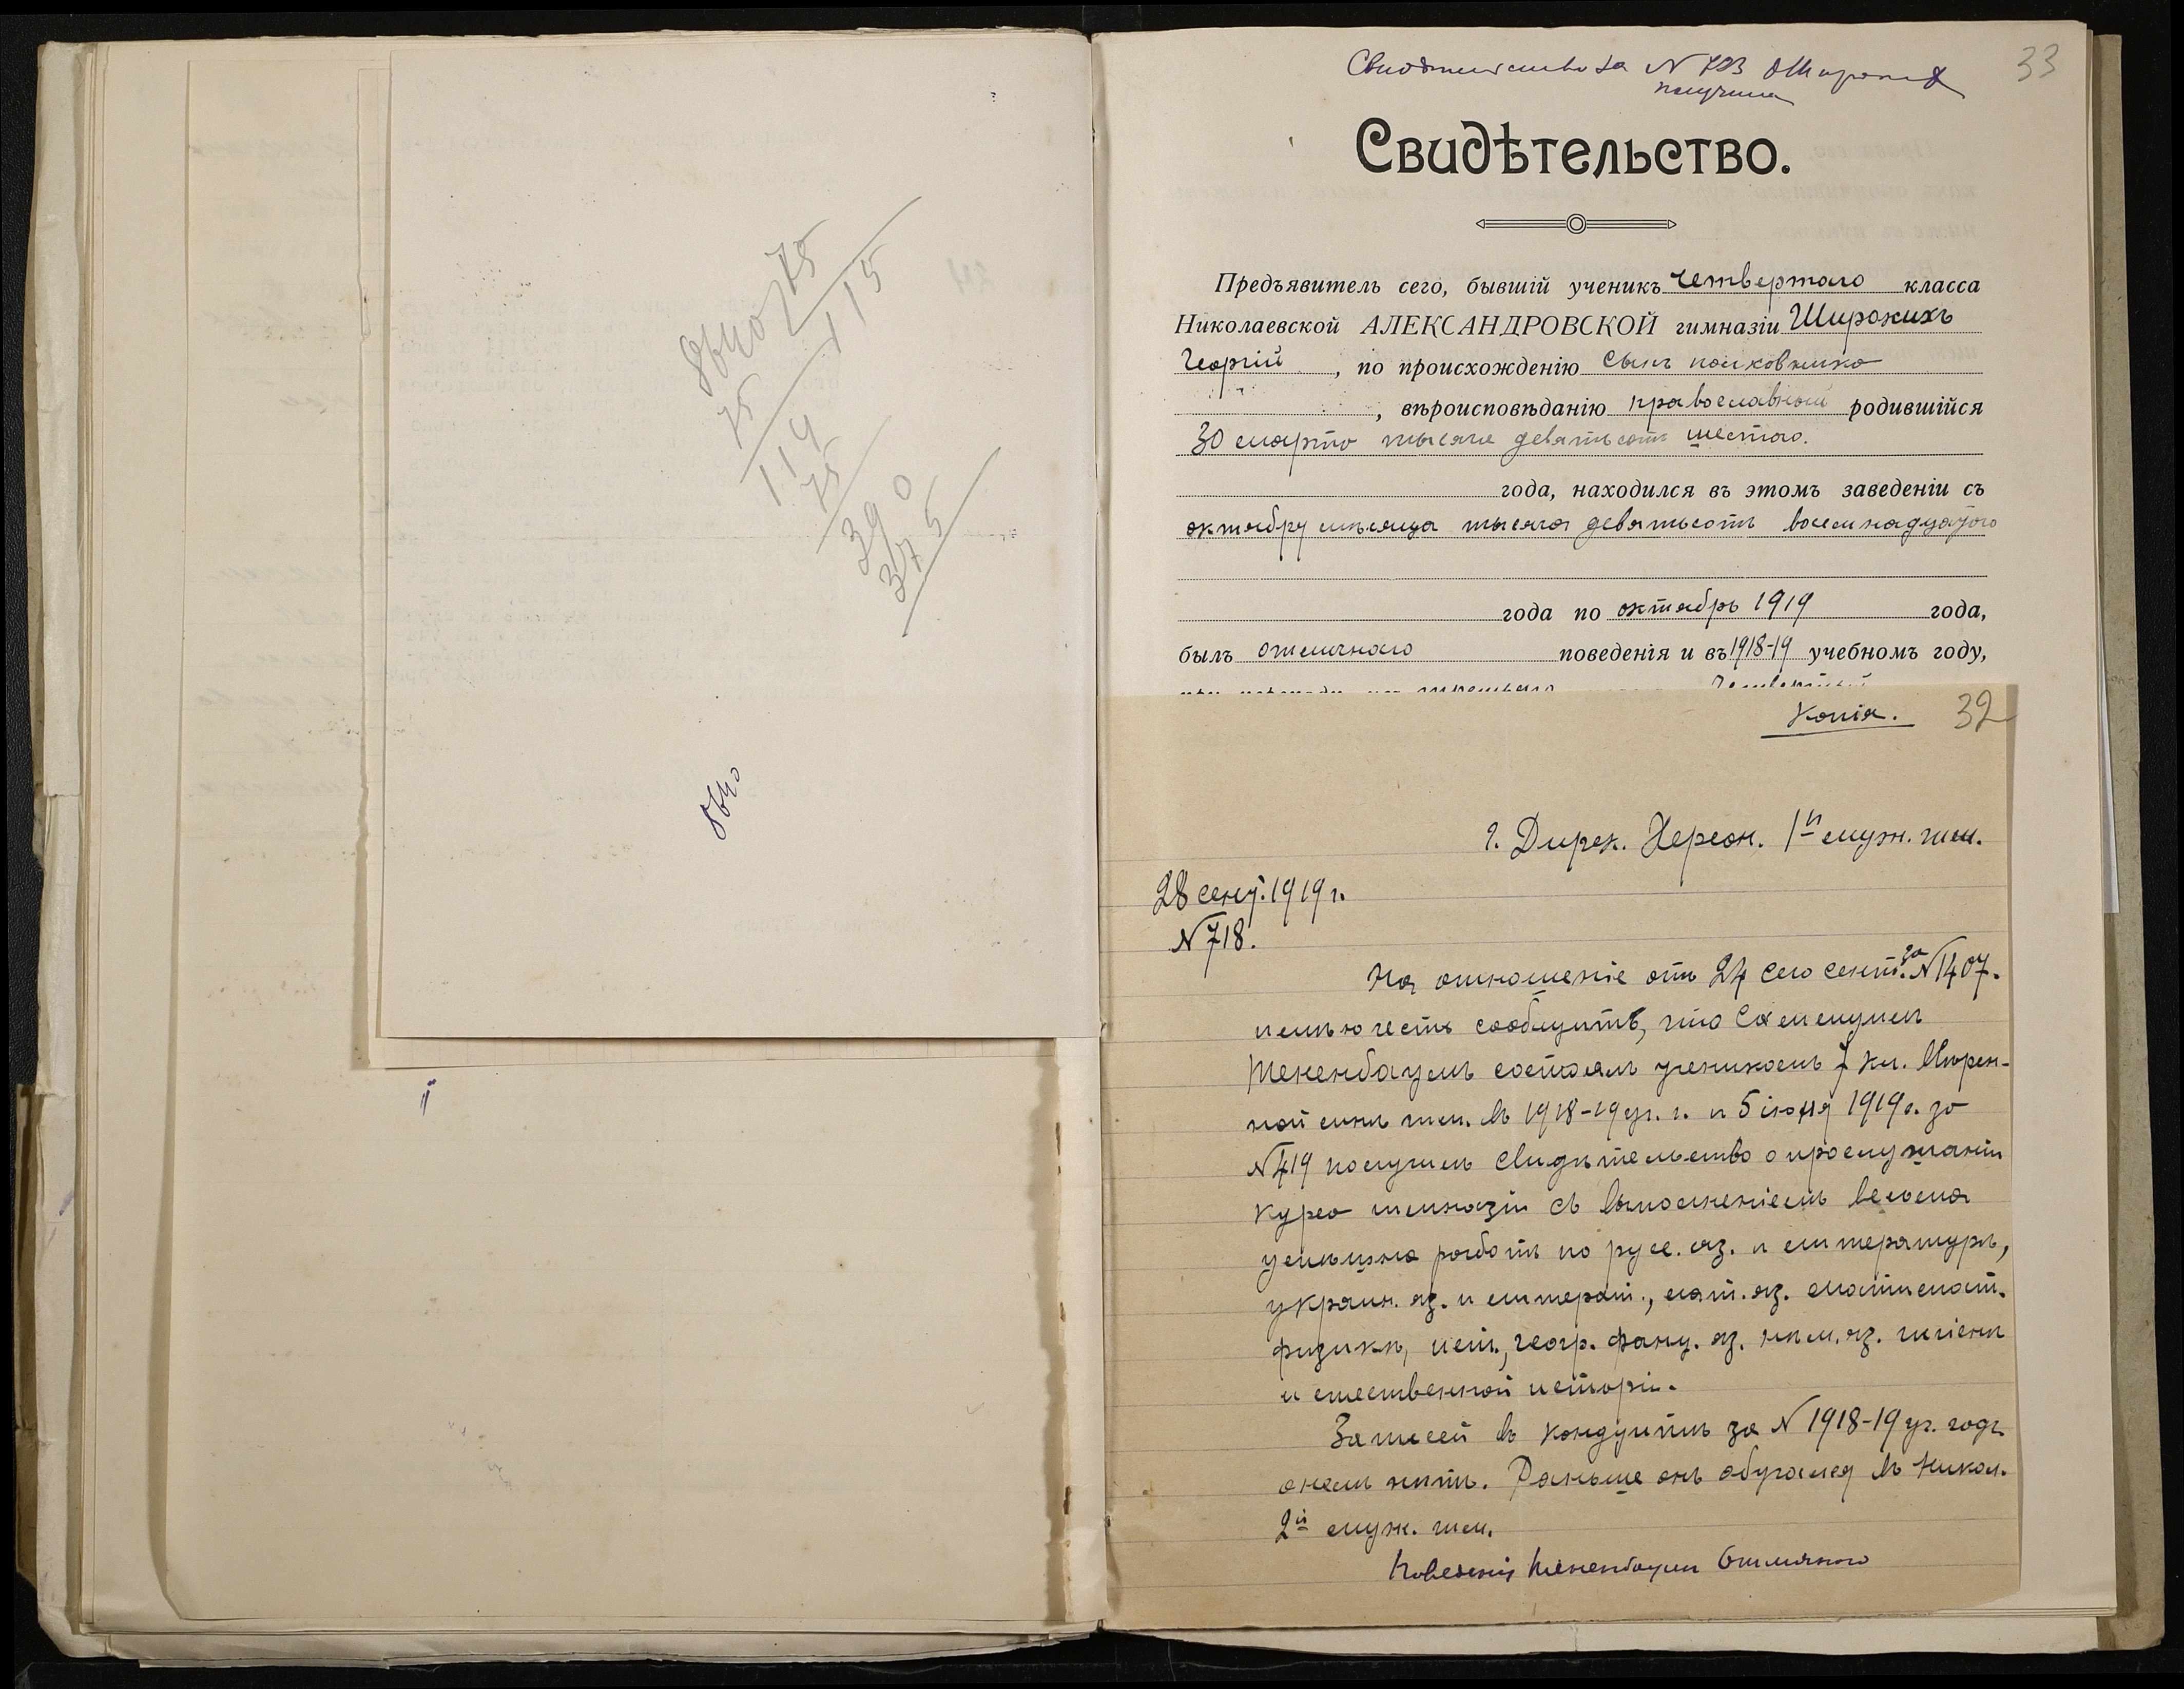 8640 | 75
75
115
114
75
390
375
8640
33
Свидѣтельство за N 723 Широких
получила
Свидѣтельство.
Предъявитель сего, бывшій ученикъ четвертаго класса
Николаевской АЛЕКСАНДРОВСКОЙ гимназіи Широкихъ
Георгій , по происхожденію сынъ полковника
, вѣроисповѣданію православнаго родившійся
30 марта тысяча девятьсотъ шестого.
года, находился въ этомъ заведеніи съ
октября мѣсяца тысяча девятьсотъ восемнадцатого
года по октябрь 1919 года,
былъ отличнаго поведенія и въ 1918-19 учебномъ году,
32
Копія.
Г. Дирек. Херсон. 1й мужн. гим.
28 сент. 1919 г.
N 718.
На отношеніе отъ 24 сего сент. за N 1407.
имѣю честь сообщить, что
Тененбаумъ состоялъ ученикомъ 7 кл.
ной мнѣ гим. въ 1918-19 уч. г. и 5 іюня 1919 г. за
N 419 получилъ свидѣтельство о прослушаніи
курса гимназіи съ выполненіемъ весьма
успѣшно работъ по русс. яз. и литературѣ,
украин. яз. и литерат., лат. яз. математ.
физикѣ, ист., геогр. франц. яз. нѣм. яз. гигіенѣ
и естественной исторіи.
Записей въ кондуитѣ за N 1918-19 уч. годъ
о немъ нѣтъ. Раньше онъ обучался въ Никол.
2й муж. гим.
Поведенія Тененбаумъ Отличнаго